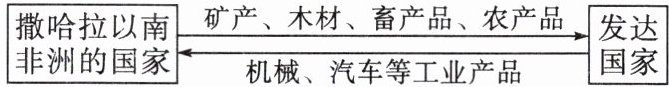 撒哈拉以南
非洲的国家
矿产、木材、畜产品、农产品
机械、汽车等工业产品
发达
国家